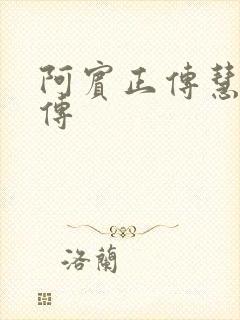 阿賓正傳慧
傳
洛蘭